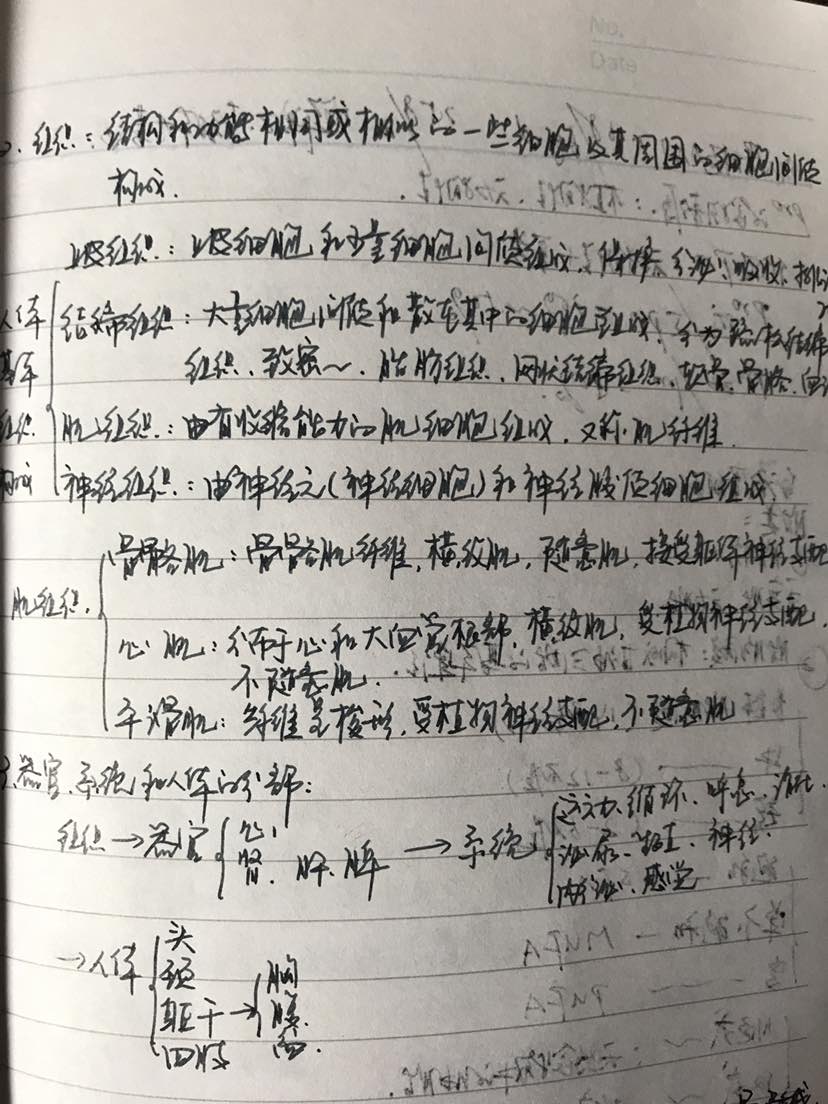 No.
Date
2. 组织：结构和功能相同或相似的一些细胞及其周围的细胞间质
构成.
上皮组织：上皮细胞和少量细胞间质组成，保护、分泌、吸收、排泄
人体基本组织构成
结缔组织：大量细胞间质和散在其中的细胞组成，分为疏松结缔
组织、致密～、脂肪组织、网状结缔组织、软骨、骨骼、血
肌组织：由有收缩能力的肌细胞组成，又称肌纤维
神经组织：由神经元(神经细胞)和神经胶质细胞组成.
肌组织.
骨骼肌：骨骼肌纤维，横纹肌，随意肌，接受躯体神经支配
心肌：分布于心和大血管根部，横纹肌，受植物神经支配，
不随意肌.
平滑肌：纤维呈梭形，受植物神经支配，不随意肌
3.器官、系统和人体的分部：
组织→器官{心、肾、肝、脾→系统{运动、循环、呼吸、消化、
泌尿、生殖、神经、
内分泌、感觉
→人体{头
颈
躯干→{胸 腹
四肢